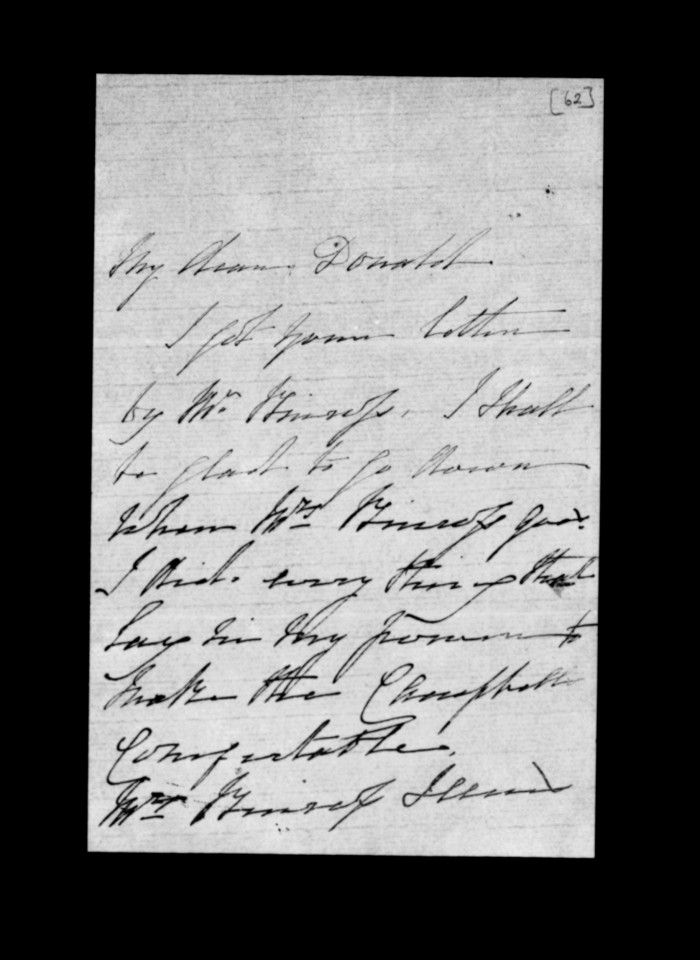 [62]
My dear Donald
I got your letter
by Mr Kinross. I Shall
be glad to go down
When Mrs Kinross goes.
I did every thing that
Lay in My power to
Make the Campbells
Comfortable.
Mrs Kinross